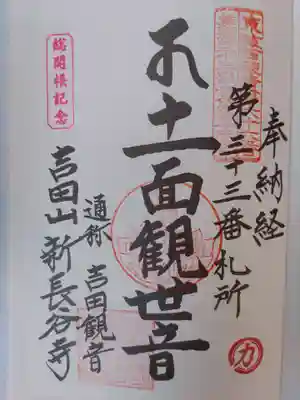 奉納経
第三十三番札所
十一面観世音
通称 吉田観音
吉田山 新長谷寺
総開帳記念
力